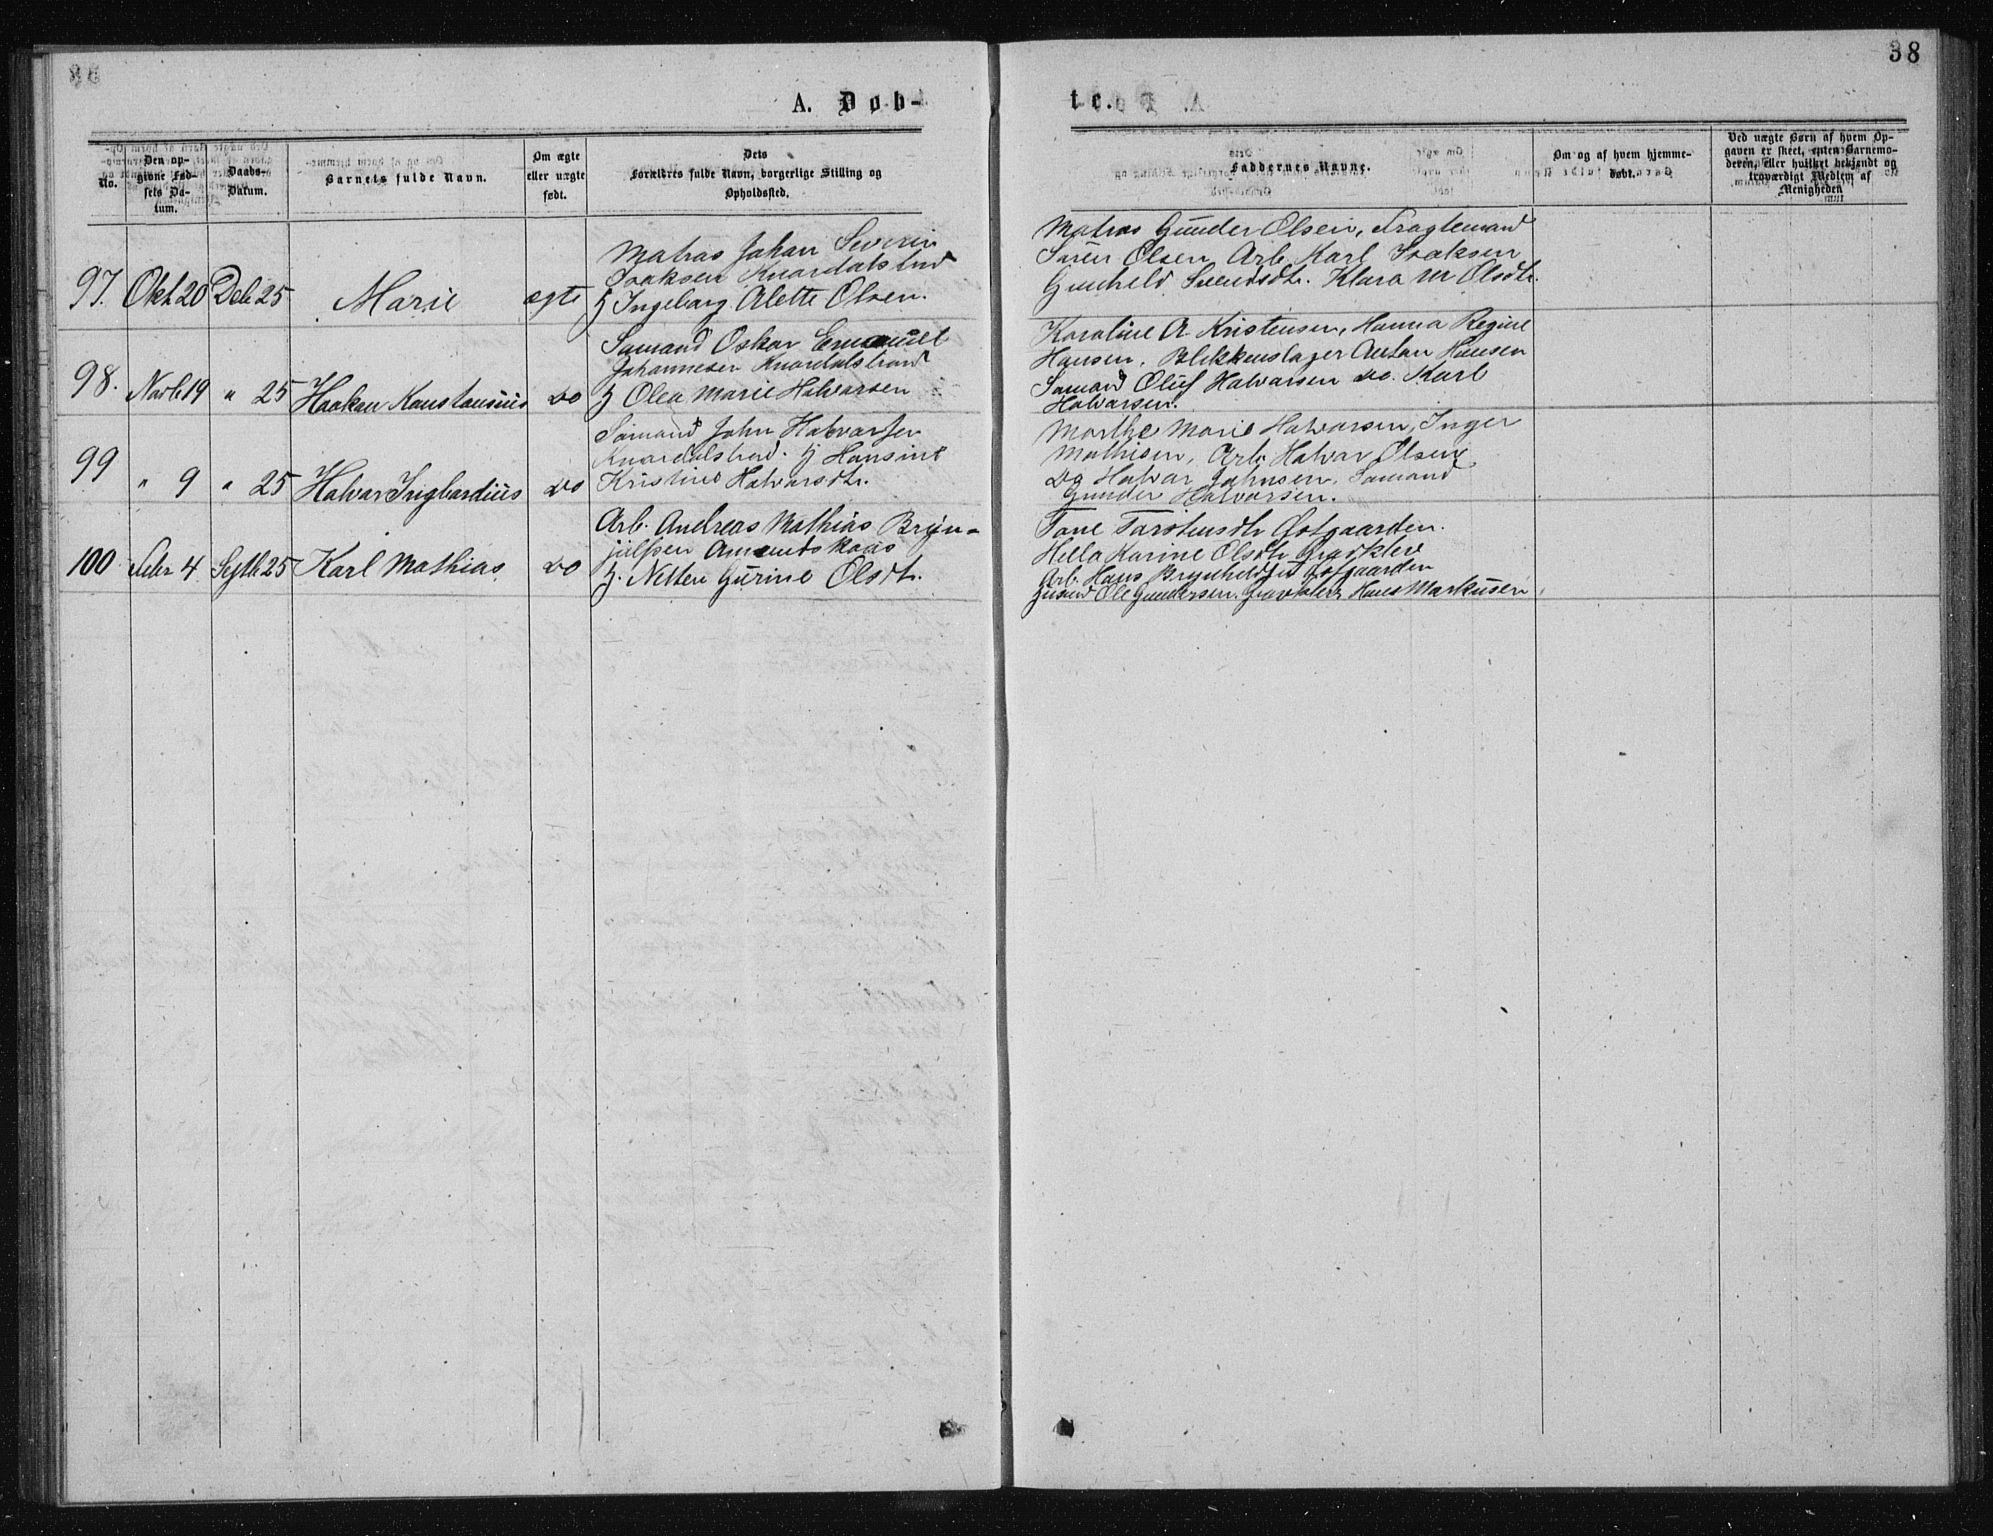 38
A. Døb-
te.
No.
Den op-
givne Fød-
sels Da-
tum.
Daabs-
Datum.
Barnets fulde Navn.
Om ægte
eller uægte
født.
Dets
Forældres fulde Navn, borgerlige Stilling og
Opholdssted.
Faddernes Navne.
Om og af hvem hjemme-
døbt.
Ved uægte Børn af hvem Op-
gaven er skeet, enten Barnemo-
deren, eller hvilket bekjendt og
troværdigt Medlem af
Menigheden
97. Okt 20 Deb 25 Marie ægte
Matros Johan Severin
Isaksen Knardalstrand
H Ingeborg Alette Olsen.
Matros Gunder Olsen, Fragtemand
Søren Olsen Arb. Karl Isaksen
Gunheld Svendsdtr. Klara M Olsdtr.
98. Novb 19 " 25 Haakon Konstansius do
Sømand Oskar Emanuel
Johannesen Knardalstrand
H Olea Marie Halvorsen
Karoline A. Kristensen, Hanna Regine
Hansen, Blikkenslager Anton Hansen
Sømand Oluf Halvorsen do. Karl
Halvorsen.
99 " 9 " 25 Halvor Ingbardius do
Sømand John Halvorsen
Knardalstrand. H Hansine
Kristine Halvorsdtr.
Marthe Marie Halvorsen, Inger
Mathisen, Arb. Halvor Olsen
do Halvor Johnsen, Sømand
Gunder Halvorsen.
100 Febr 4 Septb 25 Karl Mathias do
Arb. Andreas Mathias Bryn-
julfsen Amundskaas
H. Nettere Gurine Olsdtr.
Tone Torstensdtr Gofgaarden.
Hella Karine Olsdtr Gravklev
Arb. Hans Brynheldsen Gofgaarden
Gusmd Ole Gundersen. Gravklev Hans Markusen